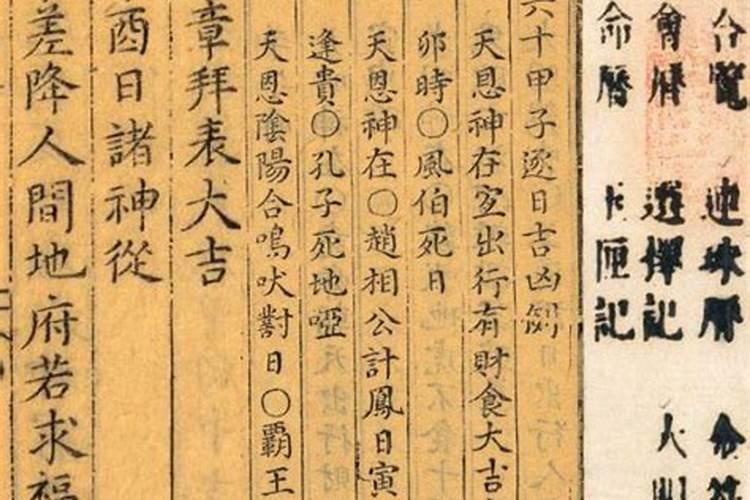 覽 連珠曆
會曆 選擇記 大明
命曆 卜匣記
六十甲子逐日吉凶例
天恩神在室出行有財食大吉
卯時○風伯死日
天恩神在○趙相公計鳳日寅
逢貴○孔子死地啞
天恩陰陽合鳴吠對日○霸王
章拜表大吉
酉日諸神從
差降人間地府若求福